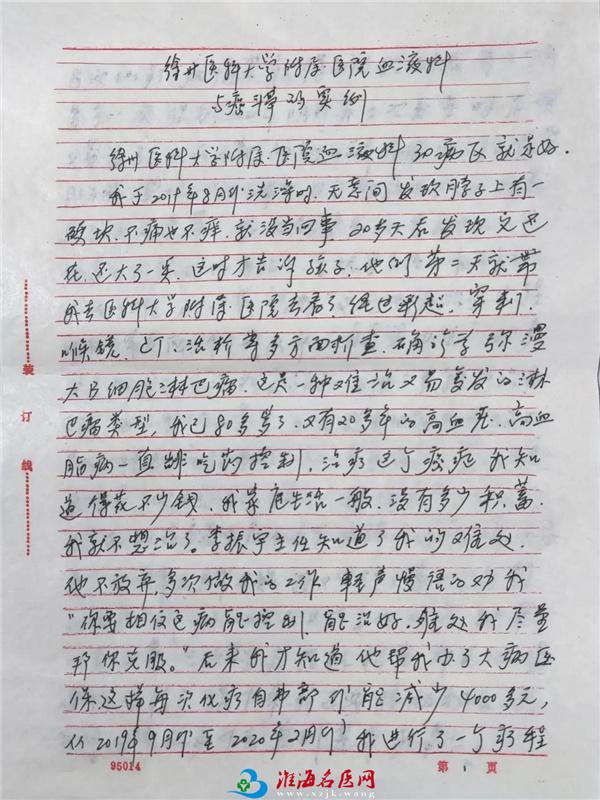 徐州医科大学附属医院血液科
与癌斗的实例
徐州医科大学附属医院血液科30病区就是好.
我于2019年8月份洗澡时.无意间发现脖子上有一
硬块.不痛也不痒.就没当回事 20多天后发现它还
在.还大了一些.这时才告诉孩子.他们第二天就带
我去医科大学附属医院去看了 经过彩超.穿刺.
喉镜.CT.活检等多方面检查.确诊为弥漫
大B细胞淋巴瘤.这是一种难治又易复发的淋
巴瘤类型,我已80多岁了.又有20多年的高血压.高血
脂病一直都吃药控制.治疗这个癌症 我知
道得花不少钱.我家庭生活一般.没有多少积蓄.
我就不想治了。李振宇主任知道了我的难处.
他不放弃,多次做我的工作 轻声慢语的劝我
“你要相信这病能控制.能治好.难处我尽量
帮你克服。”后来我才知道他帮我办了大病医
保这样每次化疗自费部分能减少4000多元,
从2019年9月份至2020年2月份我进行了一个疗程
装
订
线
95014
第1页
淮海名医网
www.xzjk.wang